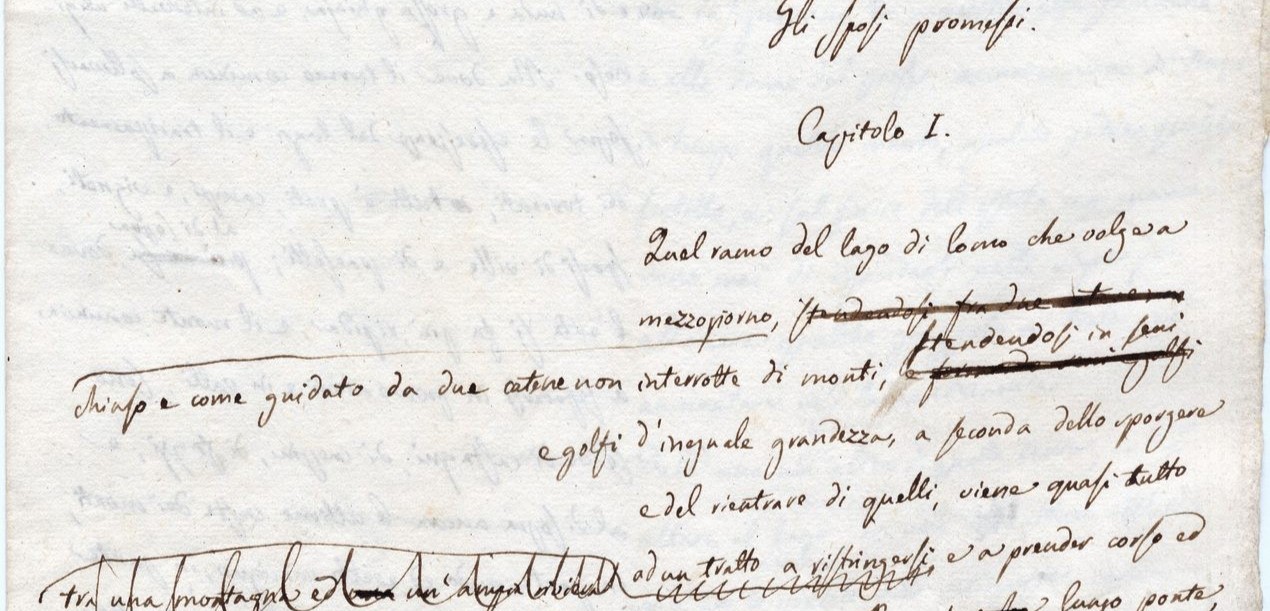 Gli sposi promessi.
Capitolo I.
Quel ramo del lago di Como che volge a
mezzogiorno, stendendosi fra due catene
stendendosi in seni
chiuso e come guidato da due catene non interrotte di monti, e formando seni golfi
e golfi d'ineguale grandezza, a seconda dello sporgere
e del rientrare di quelli, viene quasi tutto
ad un tratto a ristringersi, e a prender corso ed
tra una montagna ed un'ampia riviera
lungo ponte